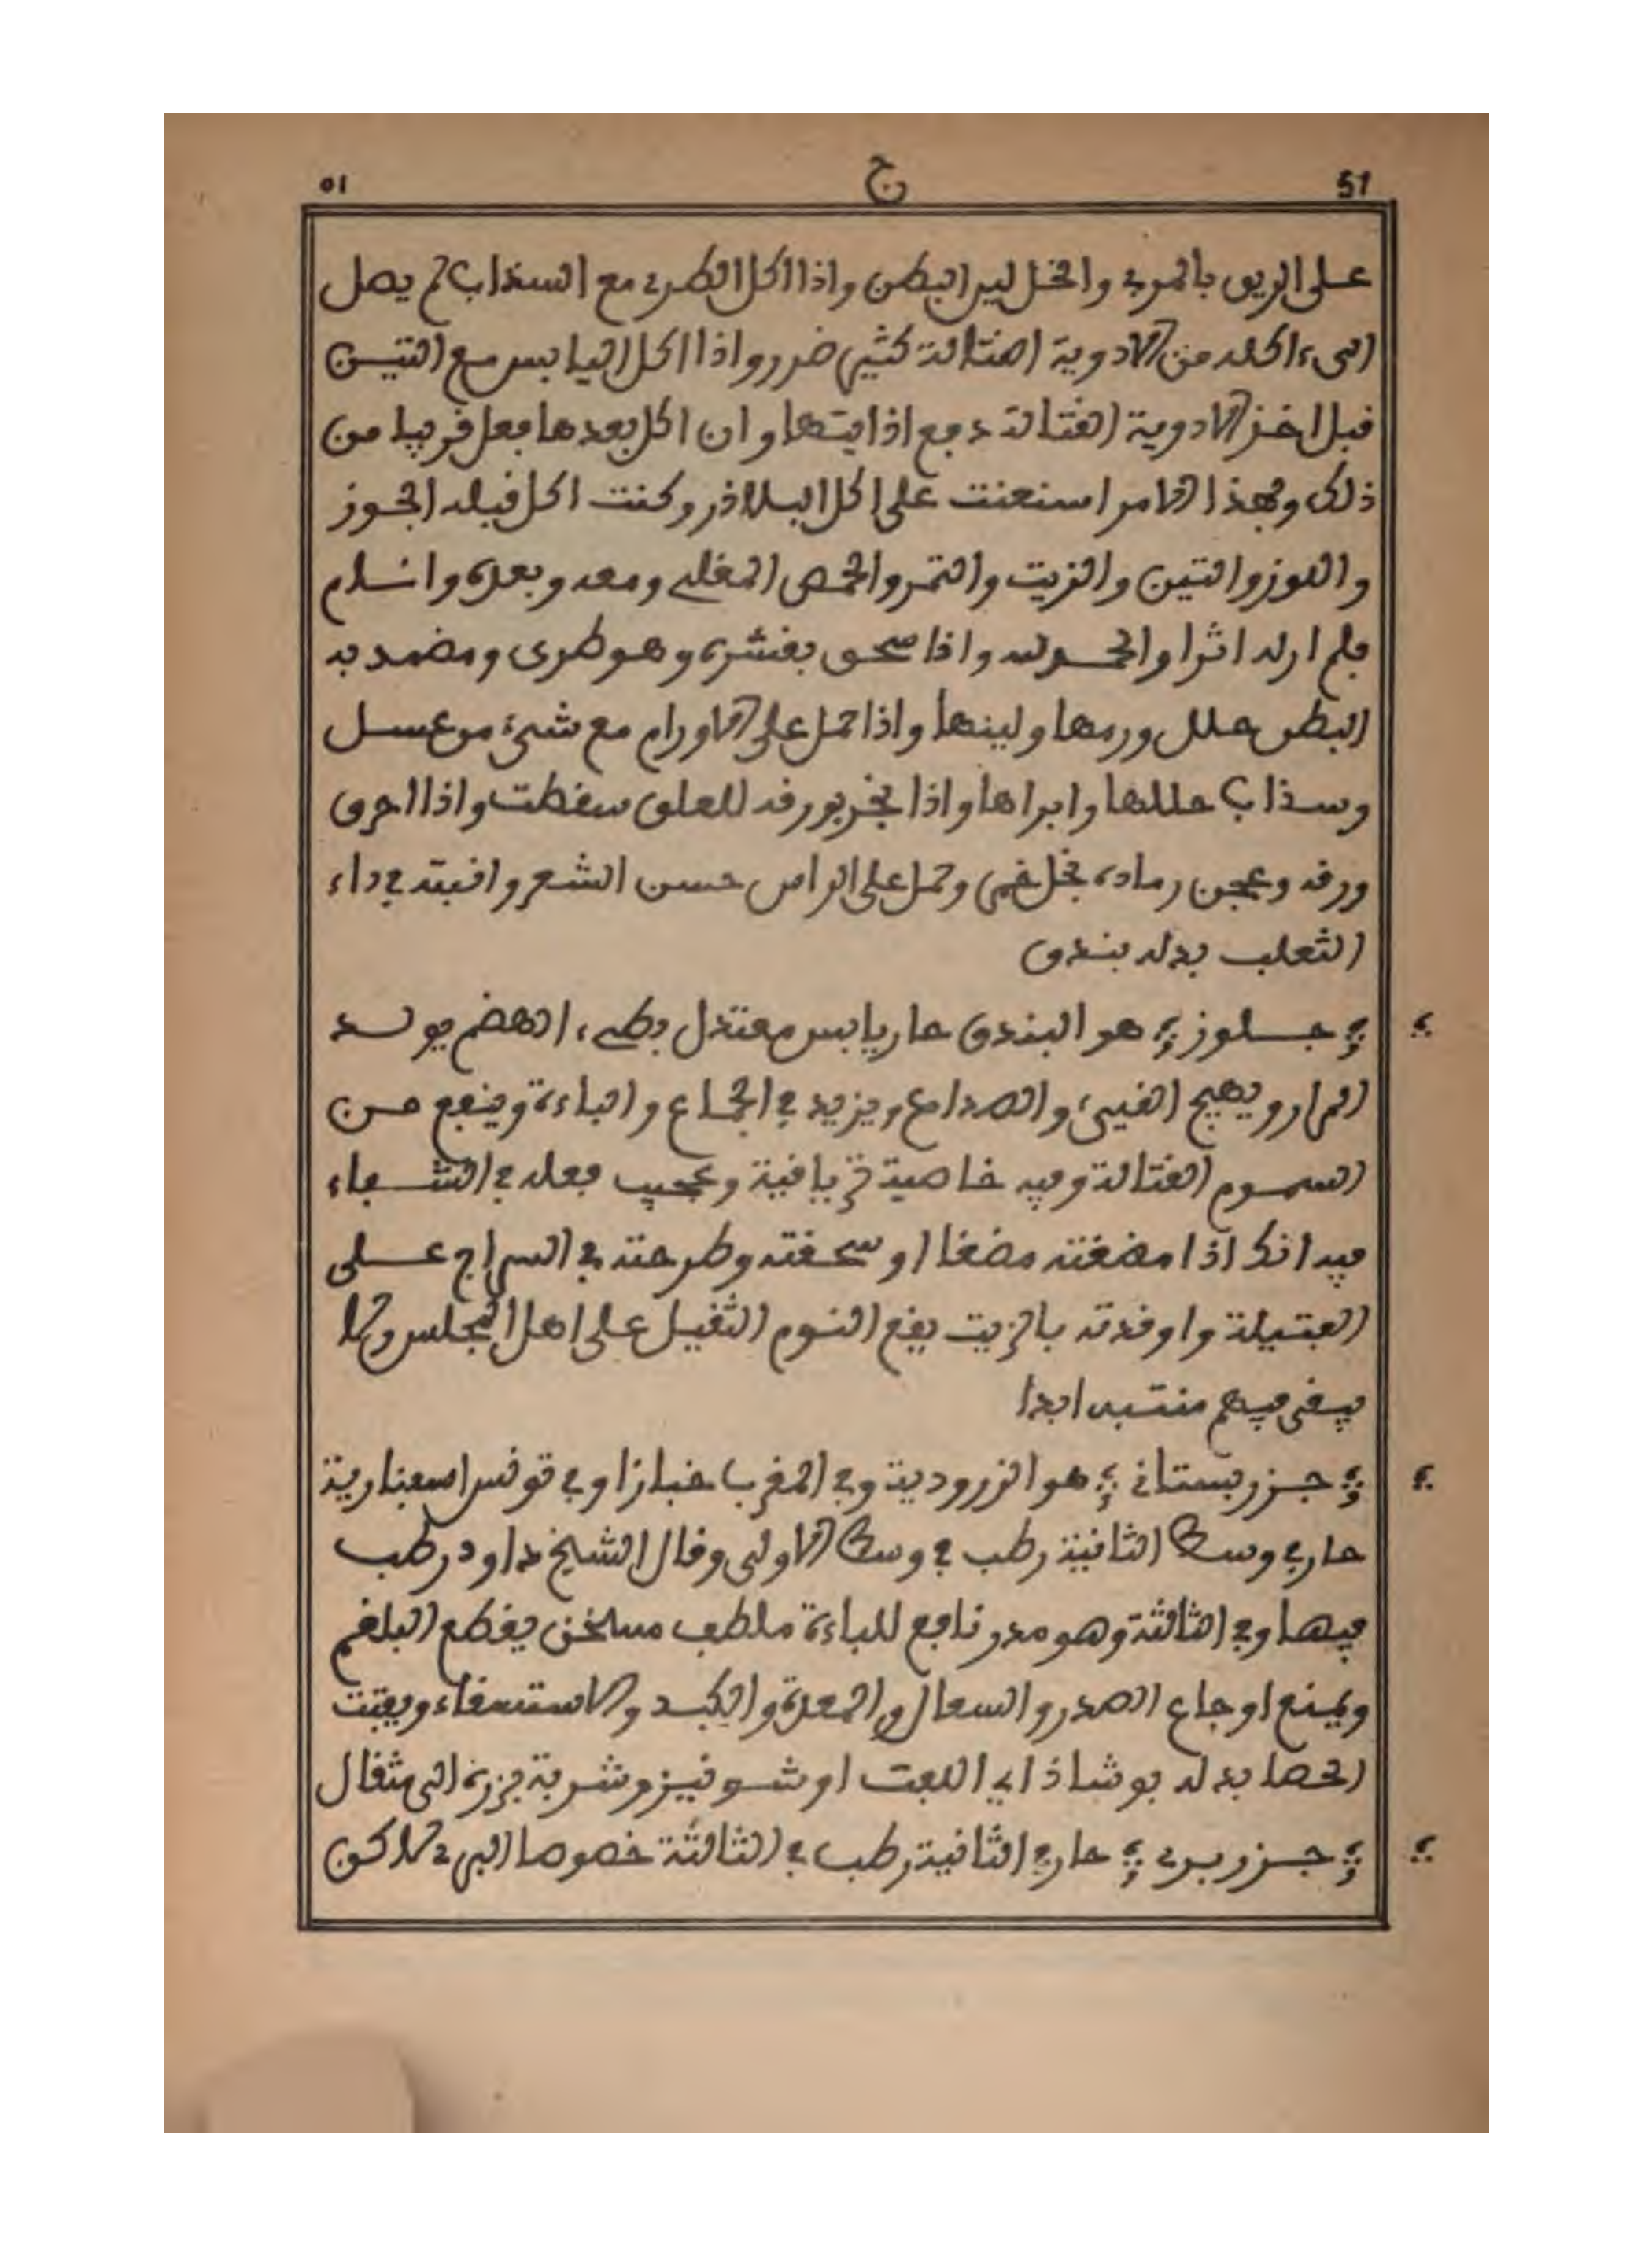 51 ج ٥١
على الريق بالمري والخل لين البطن واذا اكل الطري مع السذاب لم يصل
الىء اكله من الادوية القتالة كثير ضرر واذا اكل اليابس مع التين
قبل اخذ الادوية القتالة دفع اذايتها وان اكل بعدها فعل قريبا من
ذلك وبهذا الامر استعنت على اكل البلاذر وكنت اكل قبله الجوز
واللوز والتين والزيت والتمر والحمص المغلي ومعه وبعده وانسلم
فلم ار له اثرا والحمد لله واذا سحق بقشره وهو طري وضمد به
البطن حلل ورمها ولينها واذا حمل على الاورام مع شيء من عسل
وسذاب حللها وابراها واذا بخر بورقه للعلق سقطت واذا احرق
ورقه وعجن رماده بخل خمر وحمل على الراس حسن الشعر وانبته في داء
الثعلب بدله بندق
جلوز هو البندق حار يابس معتدل بطيء الهضم يولد
المرار ويهيج القيء والصداع ويزيد في الجماع والباءة وينفع من
السموم القتالة وفيه خاصية ترياقية وعجيب فعله في الشفاء
فيه انك اذا مضغته مضغا او سحقته وطرحته في السراج على
الفتيلة واوقدته بالزيت يقع النوم الثقيل على اهل المجلس ولا
يبقى فيهم منتبه ابدا
جزر بستاني هو الزرودية وفي المغرب خبازا وفي تونس اسفنارية
حار في وسط الثانية رطب في وسط الاولى وقال الشيخ داود رطب
فيها وفي الثالثة وهو مدر نافع للباءة ملطف مسخن يقطع البلغم
ويمنع اوجاع الصدر والسعال والمعدة والكبد والاستسقاء ويفتت
الحصا بدله بوشاذ اي اللفت او شونيز وشربة بزره الى مثقال
جزر بري حار في الثانية رطب في الثالثة خصوصا البري لاكن